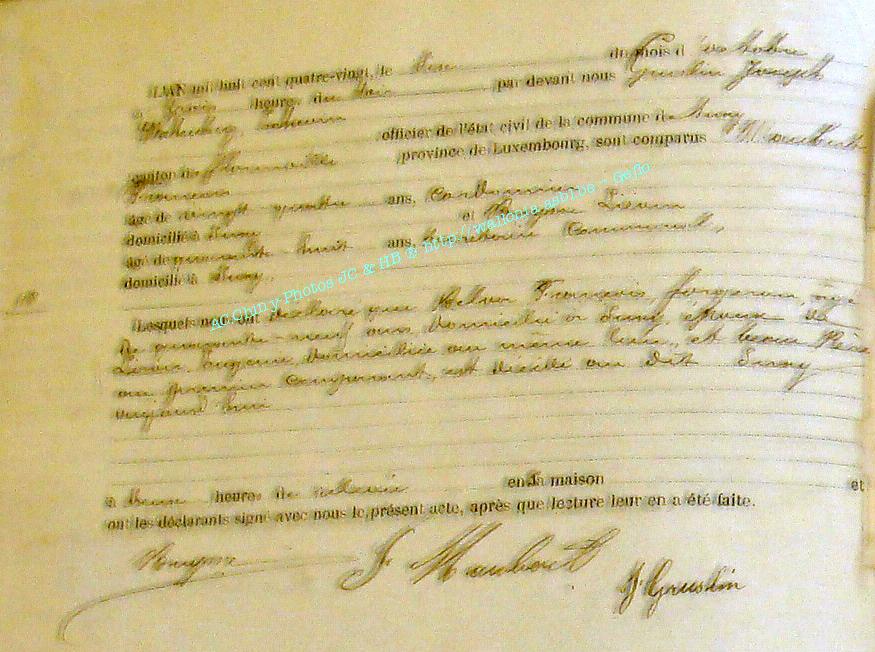 L'AN mil huit cent quatre-vingt, le du mois d'octobre
à trois heures du soir par devant nous Gustin Joseph
officier de l'état civil de la commune de Suxy
canton de Florenville province de Luxembourg, sont comparus Maubert
François
âgé de vingt-quatre ans, Cordonnier
domicilié à Suxy et
âgé de quarante-huit ans, Secrétaire Communal,
domicilié à Suxy.
Lesquels nous ont déclaré que François, forgeron, âgé
de quarante-neuf ans, domicilié à Suxy, époux de
Eugénie, domiciliée au même lieu, et beau Père
au premier comparant, est décédé au dit Suxy
aujourd'hui
à heures du en sa maison et
ont les déclarants signé avec nous le présent acte, après que lecture leur en a été faite.
F Maubert
J Gustin
AC Chiny Photos JC & HB & http://wallonia.asbl.be - Geflo